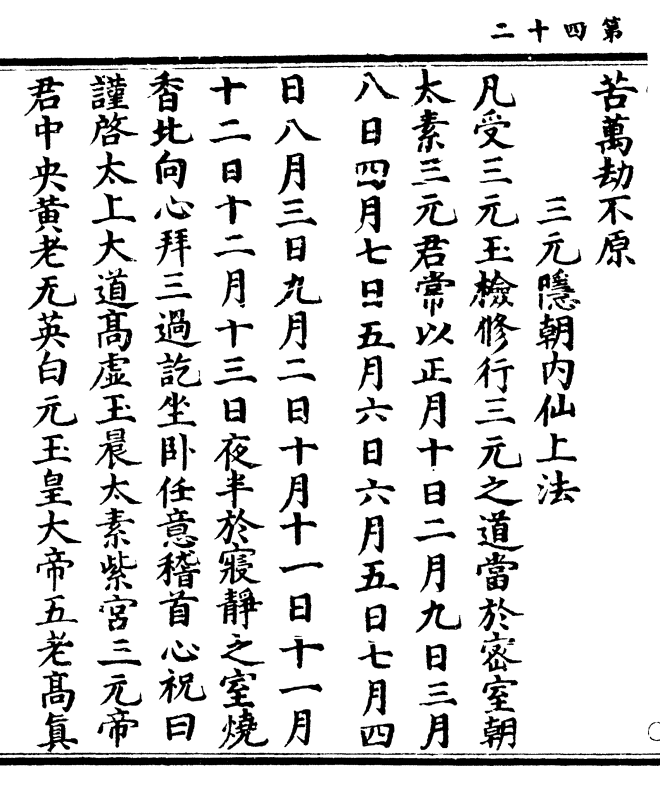 第四十二
苦萬劫不原
三元隱朝內仙上法
凡受三元玉檢修行三元之道當於密室朝
太素三元君常以正月十日二月九日三月
八日四月七日五月六日六月五日七月四
日八月三日九月二日十月十一日十一月
十二日十二月十三日夜半於寢靜之室燒
香北向心拜三過訖坐卧任意稽首心祝曰
謹啓太上大道高虛玉晨太素紫宮三元帝
君中央黃老无英白元玉皇大帝五老高眞